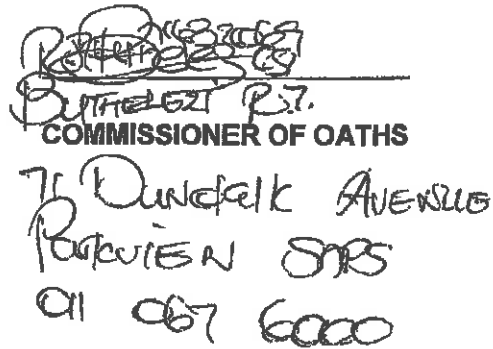 BUTHELEZI R.T.
COMMISSIONER OF OATHS
71 DUNdalk AVENUE
PARKVIEW SAPS
011 067 6000